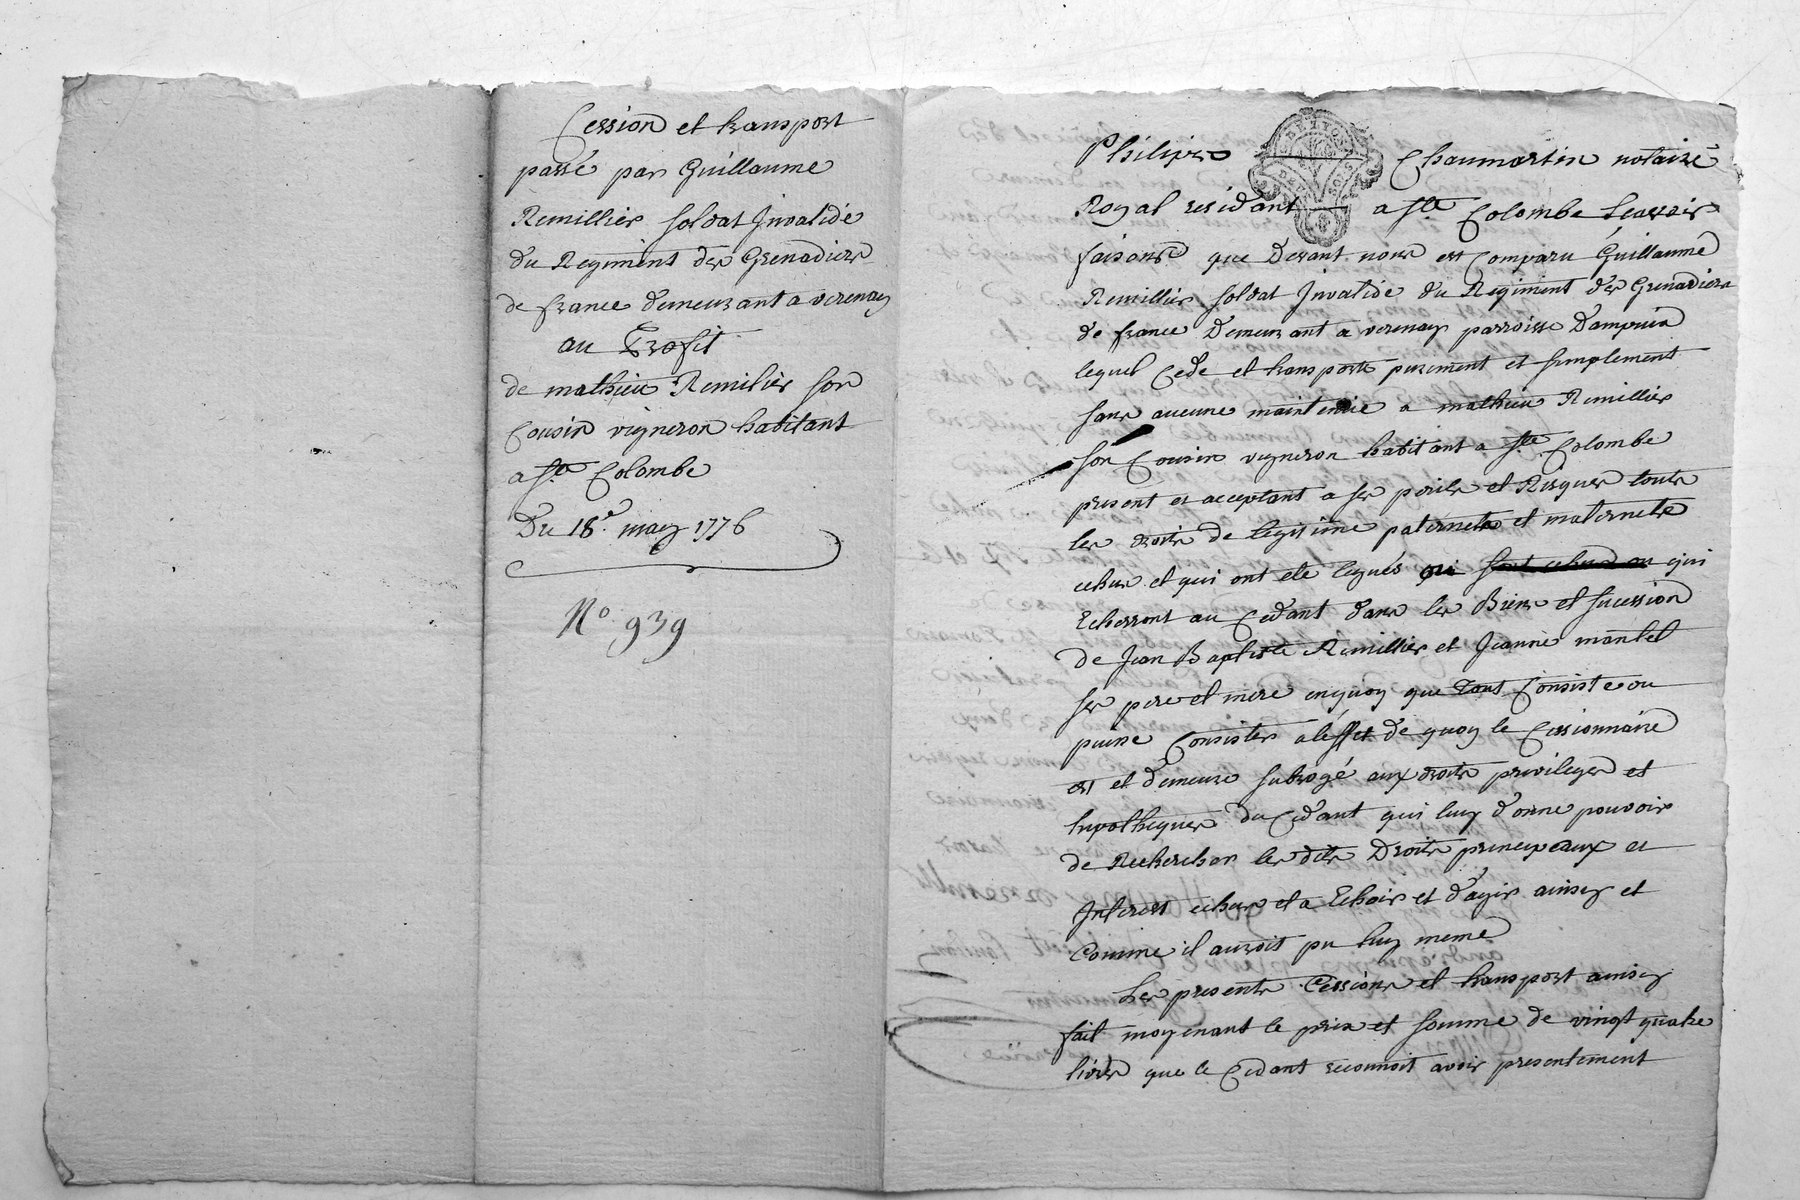 Cession et transport
passé par Guillaume
Remillier soldat Invalide
du Regiment des Grenadiers
de france demeurant a verenay
au Profit
de mathieu Remilier son
Cousin vigneron habitant
a Ste Colombe
Du 18e. may 1776
No 939
Philipes Chaumartin notaire
Royal residant a Ste Colombe Scavoir
faisons que Devant nous est Comparu Guillaume
Remillier soldat Invalide du Regiment des Grenadiers
de france Demeurant a verenay parroisse Dampuis
lequel Cede et transporte purement et simplement
sans aucune maintenue a mathieu Remillier
son Cousin vigneron habitant a Ste Colombe
present et acceptant a ses perils et Risques touts
les droits de legitime paternels et maternels
echus et qui ont eté legués qui sont echus ou qui
Echerront au Cedant dans les Biens et sucession
de Jean Baptiste Remillier et Jeanne mantel
ses pere et mere enquoy que tout Consiste ou
puisse Consister a léffet de quoy le Cessionnaire
est et demeure subrogé aux droits privileges et
hypotheques du Cedant qui luy donne pouvoir
de Rechercher les dits Droits principeaux et
Interest echus et a Echoir et d'agir ainsy et
Comme il auroit pu luy meme
Les presents Cessions et transport ainsy
fait moyenant le prix et somme de vingt quatre
livres que le Cedant reconnoit avoir presentement